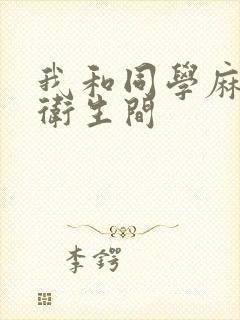 我和同學麻
衛生間
李鍔